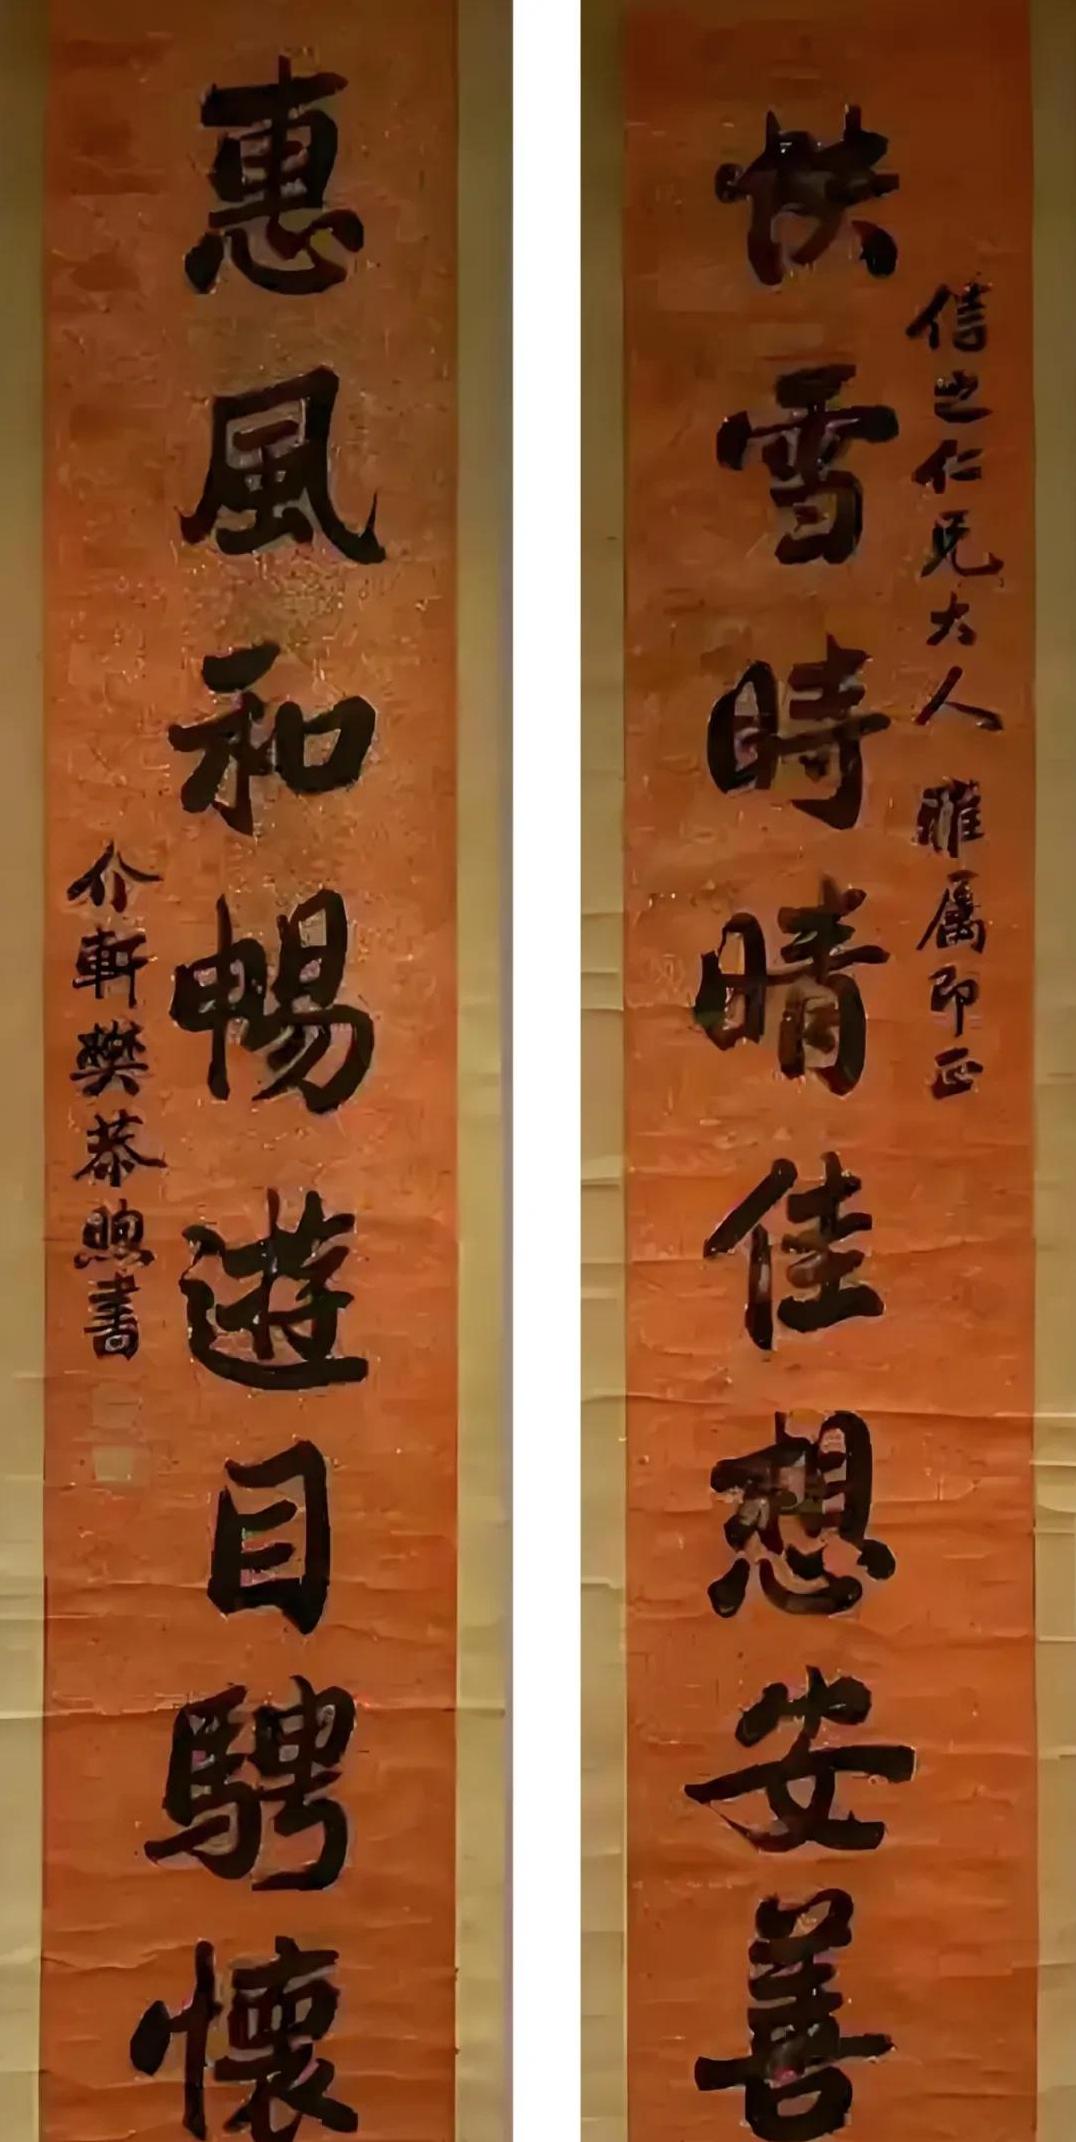 信之仁兄大人 雅属即正
快雪時晴佳想安善
惠風和暢遊目騁懷
介軒樊恭煦書